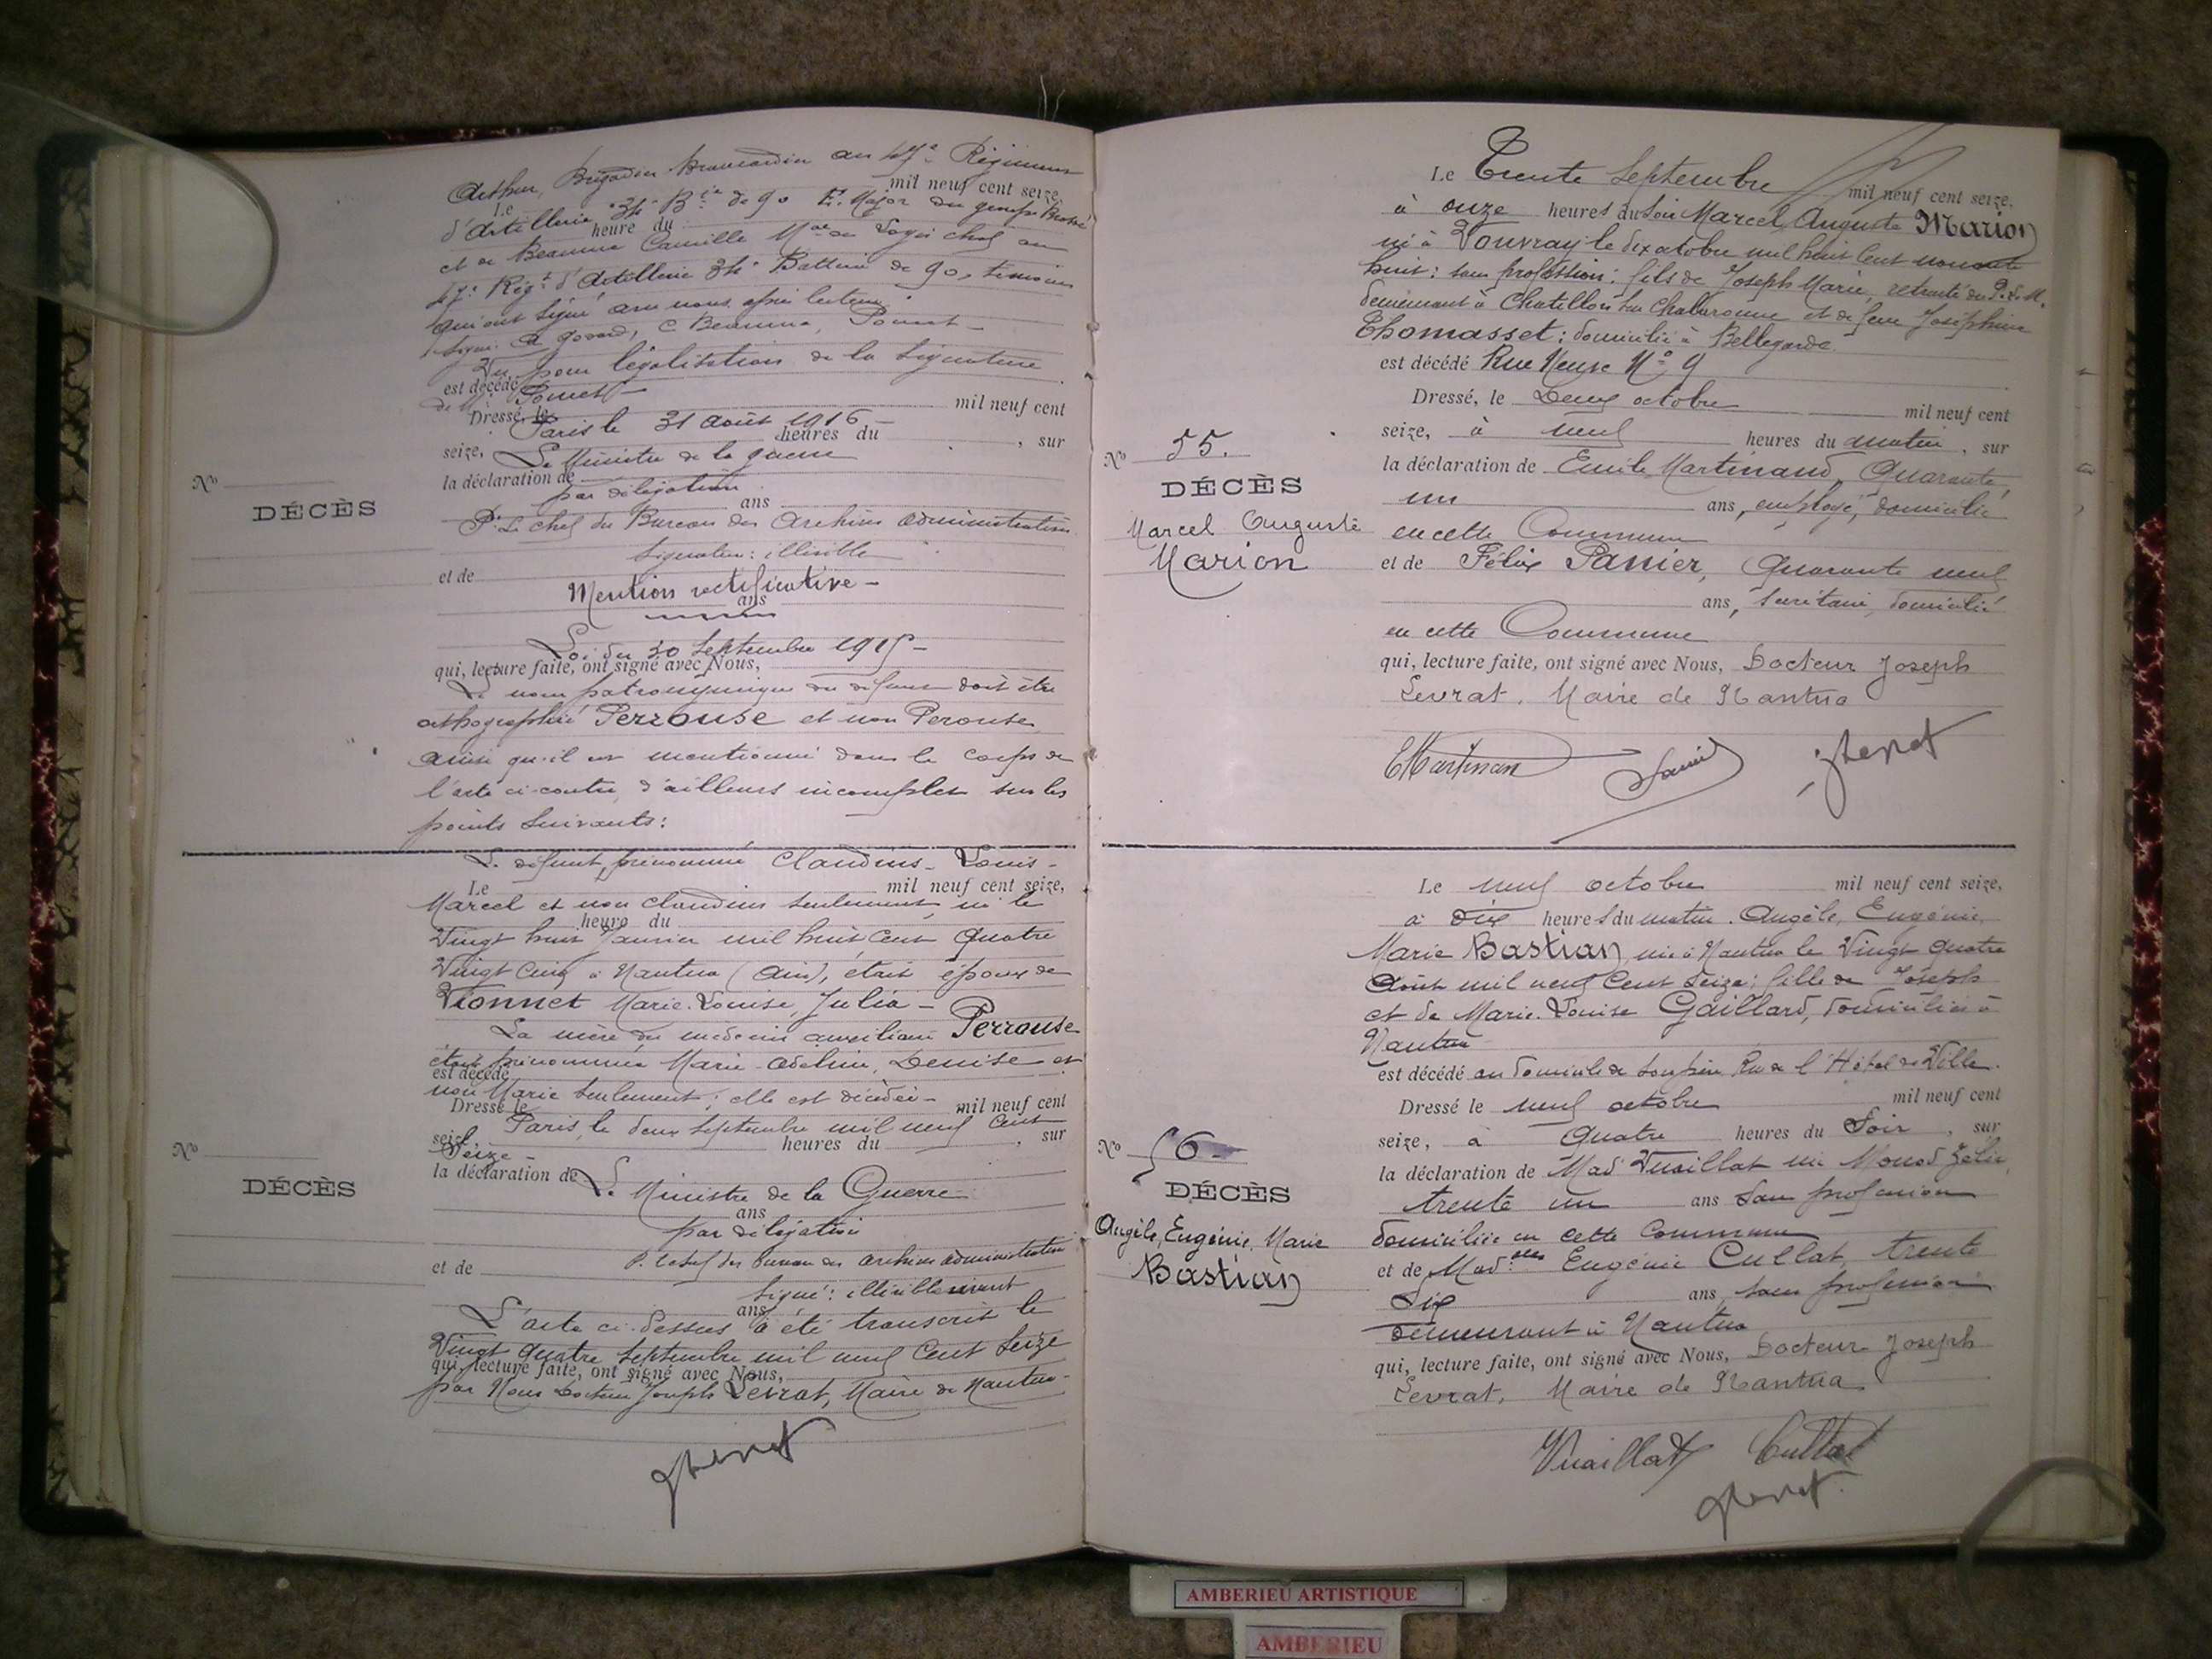 Arthur, Brigadier Brancardier au 47e Régiment
Le mil neuf cent seize,
d'Artillerie 34e Bie de 90 E. Major du groupe
heure du
et de Beaume Camille Mal des Logis chef au
47e Régt d'Artillerie 34e Batterie de 90, témoins
qui ont signé avec nous après lecture.
Signé: A Godard, C. Beaume, Pomet
Vu pour légalisation de la signature
est décédé
de M. Pomet
Dressé, le mil neuf cent
Paris le 31 août 1916
heures du , sur
seize, Le Ministre de la guerre
la déclaration de
par délégation
ans
P. Le chef du Bureau des Archives administratives
Signature: illisible
et de
Mention rectificative
ans
Loi du 30 Septembre 1915
qui, lecture faite, ont signé avec Nous,
Le nom patronymique du défunt doit être
orthographié Perrouse et non Perouse
ainsi qu'il est mentionné dans le corps de
l'acte ci-contre, d'ailleurs incomplet sur les
points suivants:
Le défunt, prénommé Claudius Louis
Le mil neuf cent seize,
Marcel et non Claudius seulement, né le
heure du
Vingt huit Janvier mil huit cent quatre
Vingt cinq à Nantua (Ain), était époux de
Vionnet Marie-Louise, Julia
La mère du médecin auxiliaire Perrouse
était prénommée Marie Adeline, Denise et
est décédé
non Marie seulement; elle est décédée
Dressé le mil neuf cent
Paris, le deux septembre mil neuf cent
seize, heures du , sur
Seize
la déclaration de Le Ministre de la Guerre
ans
par délégation
P. le chef du Bureau des archives administratives
et de
Signé: illisiblement
ans
L'acte ci-dessus a été transcrit le
Vingt quatre septembre mil neuf cent seize
qui, lecture faite, ont signé avec Nous,
par Nous Docteur Joseph Levrat, Maire de Nantua
No
DÉCÈS
No
DÉCÈS
Le Trente Septembre mil neuf cent seize,
à onze heures du soir Marcel Auguste Marion
né à Vouvray le dix octobre mil huit cent nonante
huit: sans profession: fils de Joseph Marie, retraité du P.L.M.
demeurant à Chatillon sur Chalaronne et de feue Joséphine
Thomasset: domicilié à Bellegarde.
est décédé Rue Neuve No 9
Dressé, le Deux octobre mil neuf cent
seize, à neuf heures du matin, sur
la déclaration de Emile Martinand, Quarante
un ans, employé, domicilié
en cette Commune
et de Félix Panier, Quarante neuf
ans, secrétaire, domicilié
en cette Commune
qui, lecture faite, ont signé avec Nous, Docteur Joseph
Levrat, Maire de Nantua
No 55.
DÉCÈS
Marcel Auguste
Marion
Le neuf octobre mil neuf cent seize,
à dix heures du matin. Angèle, Eugénie,
Marie Bastian, née à Nantua le Vingt quatre
Août mil neuf cent seize; fille de Joseph
et de Marie-Louise Gaillard, domiciliés à
Nantua
est décédé au domicile de son père Rue de l'Hôtel de Ville.
Dressé le neuf octobre mil neuf cent
seize, à Quatre heures du Soir, sur
la déclaration de Made Vuaillat née Monod Zélie,
trente un ans Sans profession
domiciliée en cette Commune
et de Madelle Eugénie Cullat, trente
six ans, sans profession
demeurant à Nantua
qui, lecture faite, ont signé avec Nous, Docteur Joseph
Levrat, Maire de Nantua
Vuaillat Cullat
No 56
DÉCÈS
Angèle, Eugénie, Marie
Bastian
AMBERIEU ARTISTIQUE
AMBERIEU